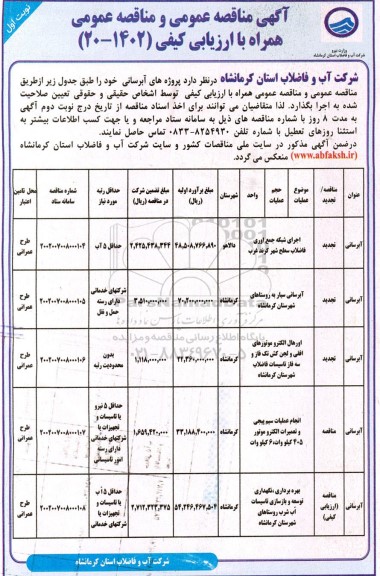 نوبت اول
آگهی مناقصه عمومی و مناقصه عمومی
همراه با ارزیابی کیفی (۱۴۰۲-۲۰)
وزارت نیرو
شرکت آب و فاضلاب استان کرمانشاه
شرکت آب و فاضلاب استان کرمانشاه درنظر دارد پروژه های آبرسانی خود را طبق جدول زیر ازطریق
مناقصه عمومی و مناقصه عمومی همراه با ارزیابی کیفی توسط اشخاص حقیقی و حقوقی تعیین صلاحیت
شده به اجرا بگذارد. لذا متقاضیان می توانند برای اخذ اسناد مناقصه از تاریخ درج نوبت دوم آگهی
به مدت ۸ روز با شماره مناقصه های ذیل به سامانه ستاد مراجعه و یا جهت کسب اطلاعات بیشتر به
استثنا روزهای تعطیل با شماره تلفن ۸۲۵۴۹۳۰-۰۸۳۳ تماس حاصل نمایند.
درضمن آگهی مذکور در سایت ملی مناقصات کشور و سایت شرکت آب و فاضلاب استان کرمانشاه
(www.abfaksh.ir) منعکس می گردد.
عنوان مناقصه/تجدید موضوع عملیات حجم عملیات واحد شهرستان مبلغ برآورد اولیه (ریال) مبلغ تضمین شرکت در مناقصه (ریال) حداقل رتبه مورد نیاز شماره مناقصه سامانه ستاد محل تامین اعتبار
آبرسانی تجدید اجرای شبکه جمع آوری فاضلاب سطح شهر کرند غرب دالاهو ۴۸,۵۰۸,۷۶۶,۸۹۰ ۲,۴۲۵,۴۳۸,۳۴۴ حداقل ۵ آب ۲۰۰۲۰۰۷۰۰۸۰۰۰۱۰۴ طرح عمرانی
آبرسانی تجدید آبرسانی سیار به روستاهای شهرستان کرمانشاه کرمانشاه ۷۰,۲۰۰,۰۰۰,۰۰۰ ۳,۵۱۰,۰۰۰,۰۰۰ شرکتهای خدماتی دارای رسته حمل و نقل ۲۰۰۲۰۰۷۰۰۸۰۰۰۱۰۵ طرح عمرانی
آبرسانی تجدید اورهال الکترو موتورهای افقی و لجن کش تک فاز و سه فاز تاسیسات فاضلاب شهرستان کرمانشاه کرمانشاه ۲۲,۳۶۰,۰۰۰,۰۰۰ ۱,۱۱۸,۰۰۰,۰۰۰ بدون محدودیت رتبه ۲۰۰۲۰۰۷۰۰۸۰۰۰۱۰۶ طرح عمرانی
آبرسانی مناقصه انجام عملیات سیم پیچی و تعمیرات الکترو موتور ۴۰۵ کیلو وات، ۶۰ کیلو وات کرمانشاه ۳۳,۱۸۸,۴۰۰,۰۰۰ ۱,۶۵۹,۴۲۰,۰۰۰ حداقل ۵ نیرو یا تاسیسات و تجهیزات یا شرکتهای خدماتی دارای رسته امور تاسیساتی ۲۰۰۲۰۰۷۰۰۸۰۰۰۱۰۷ طرح عمرانی
آبرسانی مناقصه (ارزیابی کیفی) بهره برداری ،نگهداری توسعه و بازسازی تاسیسات آب شرب روستاهای شهرستان کرمانشاه کرمانشاه ۵۴,۲۴۶,۴۶۷,۵۰۴ ۲,۷۱۲,۳۲۳,۳۷۵ حداقل ۵ آب یا تاسیسات و تجهیزات یا شرکتهای خدماتی ۲۰۰۲۰۰۷۰۰۸۰۰۰۱۰۸ طرح عمرانی
پایگاه اطلاع رسانی مناقصه و مزایده
۰۲۱-۸۸۳۴۹۶۷۰-۵
شرکت آب و فاضلاب استان کرمانشاه